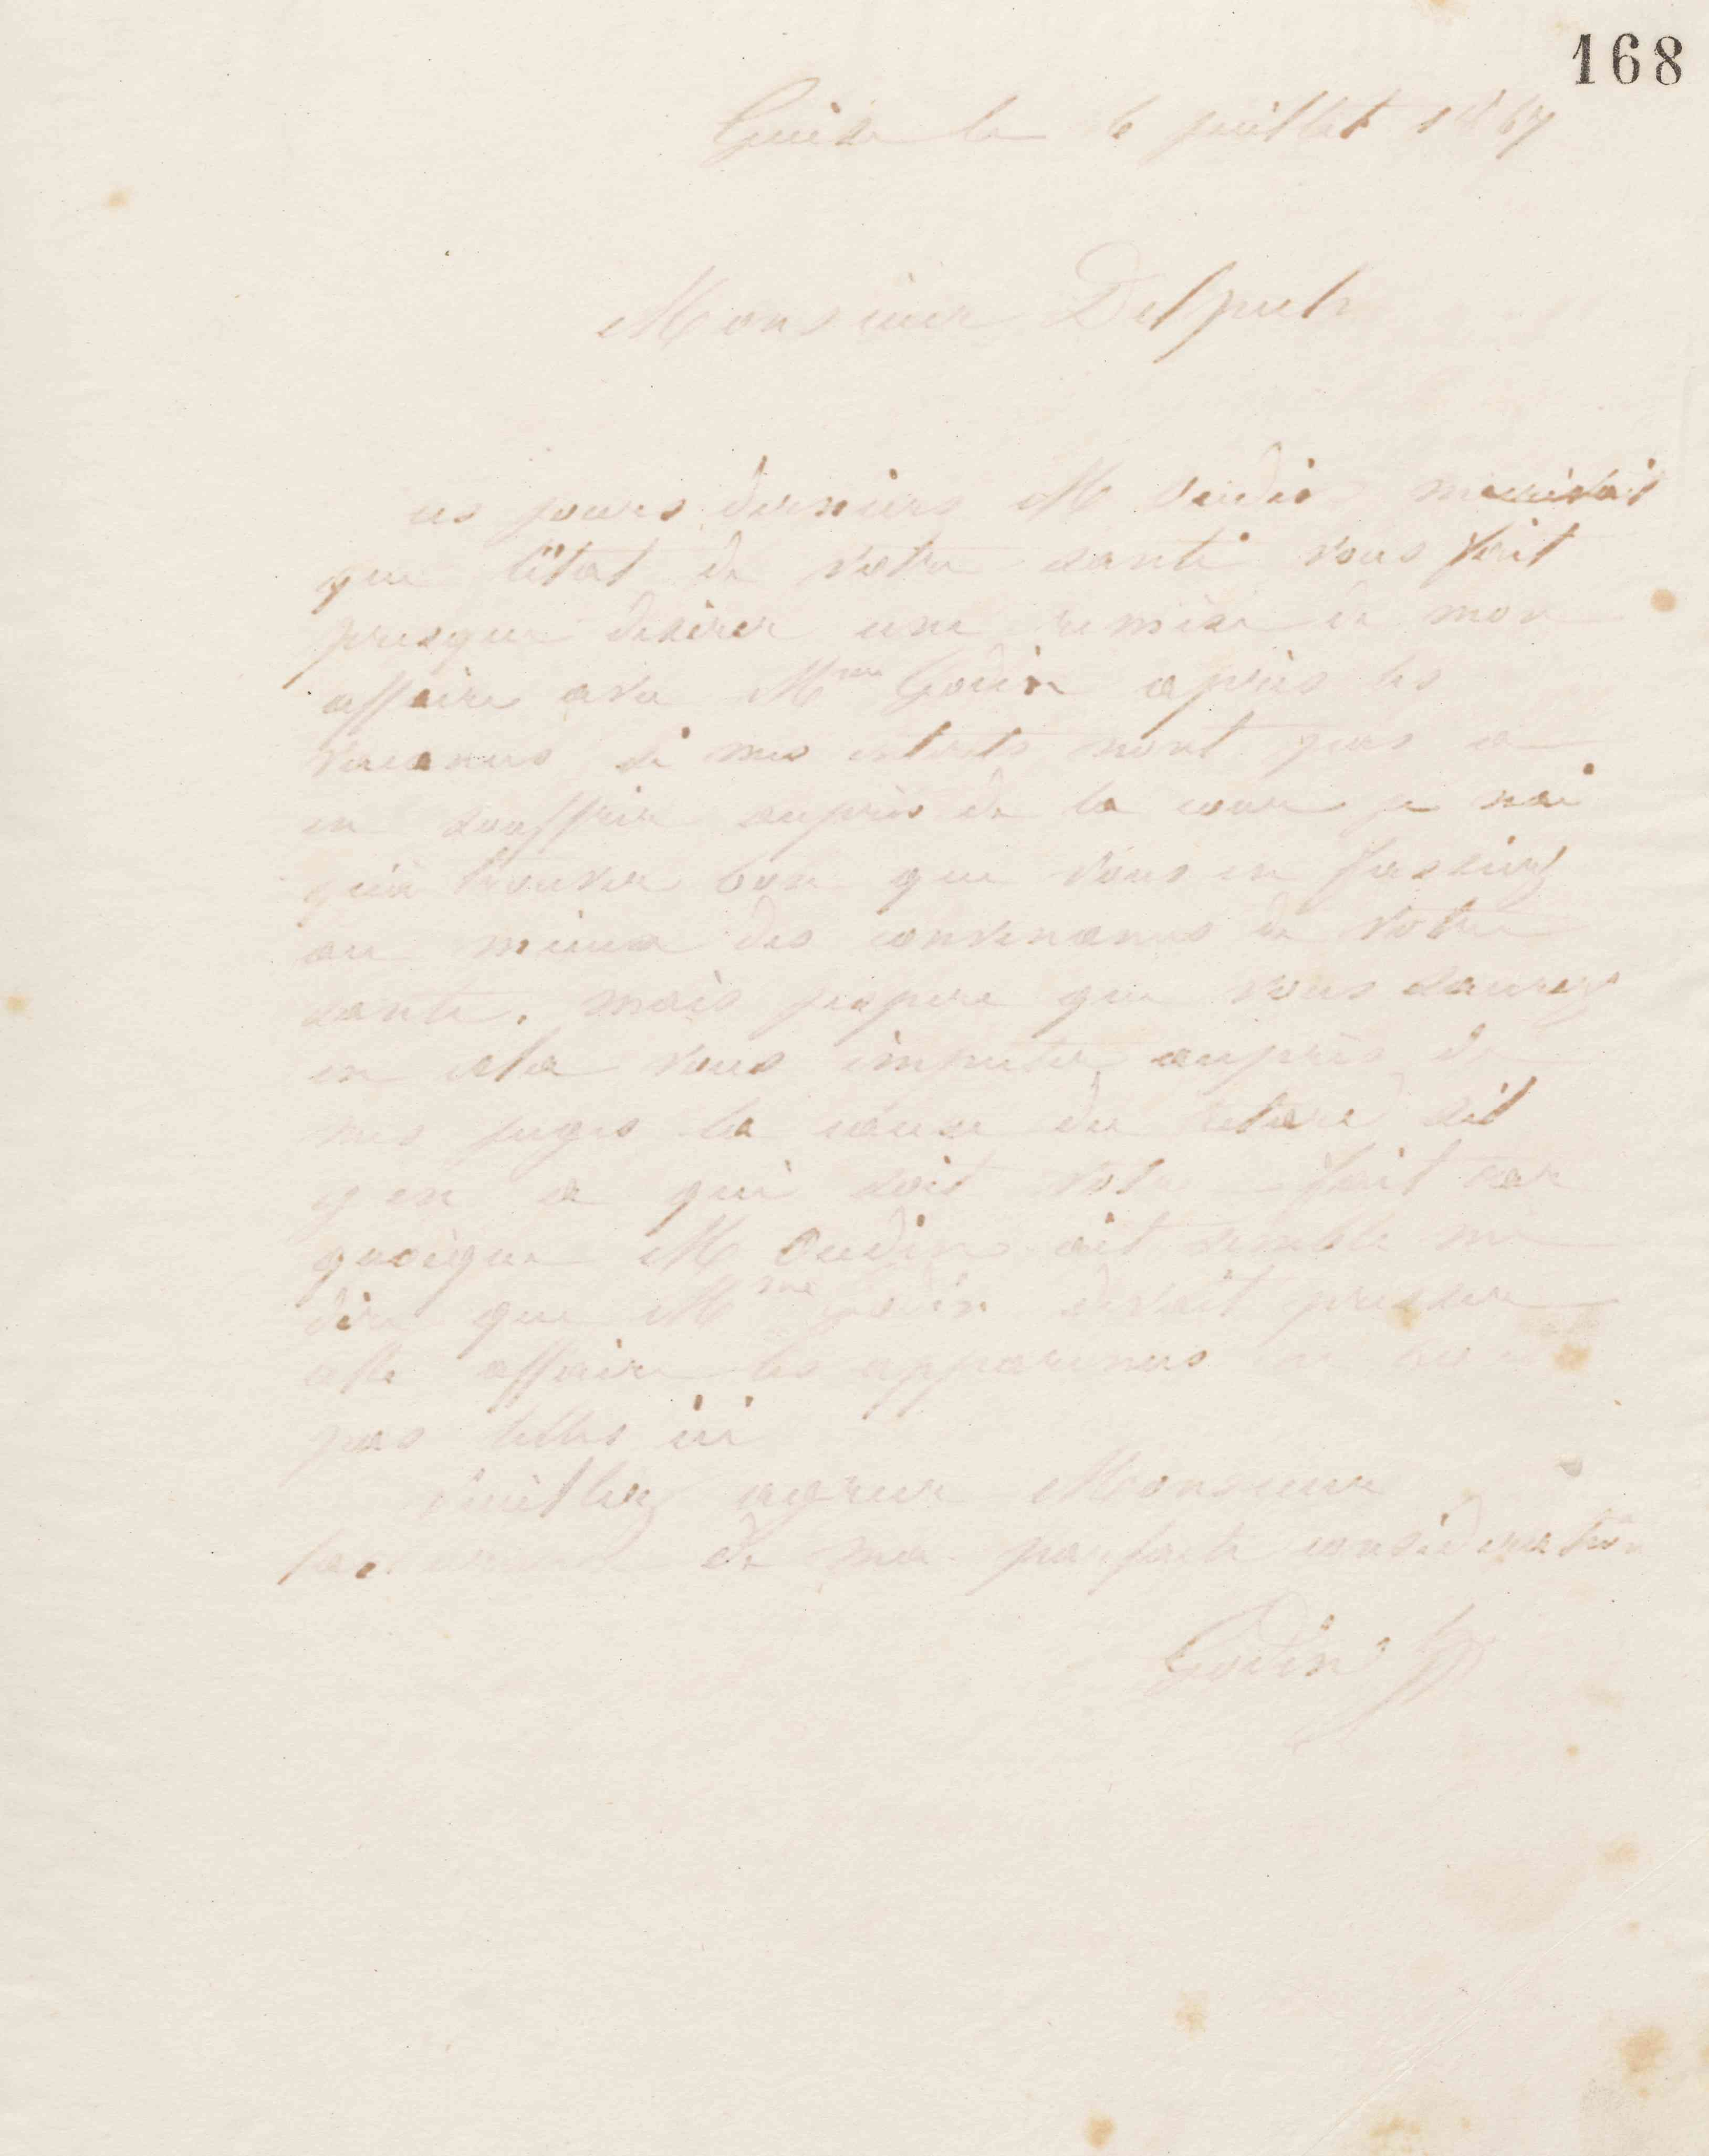 168
Guise le 6 juillet 1867
Monsieur Delpech
ces jours derniers M Oudin m'ecrivait
que l'état de votre santé vous fait
presque desirer une remise de mon
affaire avec Mme Godin apres les
vacances si mes interets n'ont pas a
en souffrir auprès de la cour je n'ai
qu'a trouver bon que vous en fassiez
au mieux des convenances de votre
santé, mais j'espere que vous saurez
en cela vous imputer auprès de
mes juges la cause du retard s'il
y en a qui soit votre fait car
quoique M Oudin ait semblé me
dire que Mme Godin devait presser
cette affaire les apparences ne
pas telles ici
Veuillez agreer Monsieur
de ma parfaite consideration
Godin